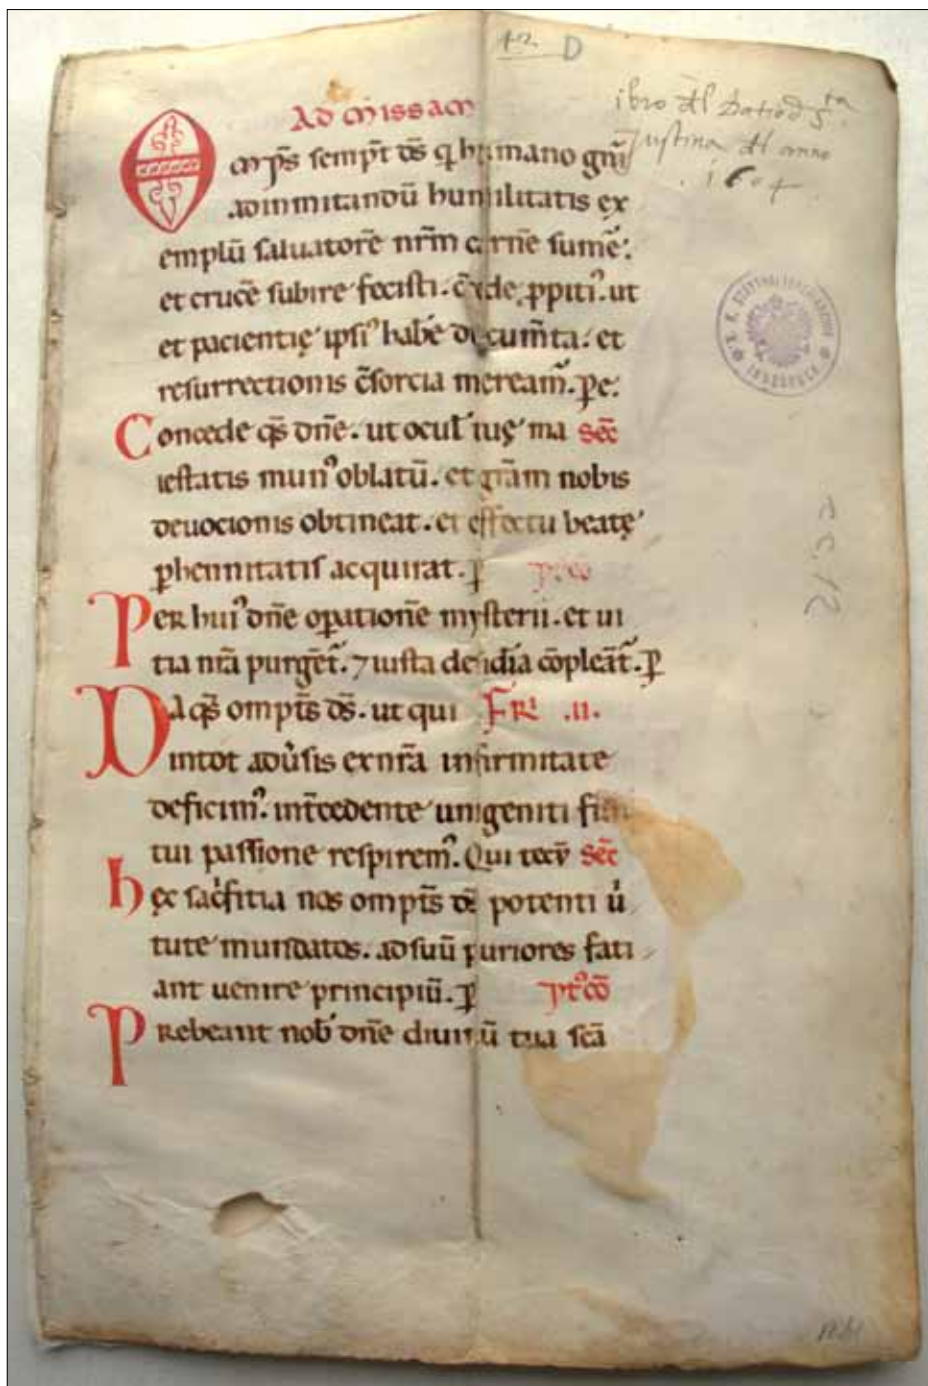 D
Ad missam
ibro dl Datio d S.ta
Justina dl anno
1604
Omp̄s sempt̄ ds̄ q humano gn̄i
adimmitandū humilitatis ex
emplū saluatorē nr̄m carnē sumē.
et crucē subire fecisti. c̄cede ꝓpitiꝰ. ut
et pacientię ipsiꝰ habē documt̄a. et
resurrectionis c̄sorcia mereamꝰ. ꝑ e.
Concede qs̄ dn̄e. ut ocul' tuę ma Sēc
iestatis munꝰ oblatū. et grām nobis
deuocionis obtineat. et effectu beatę
ꝑhennitatis acquirat. ꝑ pꝰcō
Per huiꝰ dn̄e oꝑationē mysterii. et ui
tia nr̄a purgēt. ⁊ iusta desidia cōpleāt. ꝑ
Da qs̄ ompt̄s ds̄. ut qui Fr̄ .II.
intot adūsis ex nr̄a infirmitate
deficimꝰ. int̄cedente unigeniti filii
tui passione respiremꝰ. Qui tecū Sēc
hęc sac̄fitia nos ompt̄s ds̄ potenti ū
tute mundatos. ad suū puriores fati
ant uenire principiū. ꝑ ptꝰcō
Prebeant nob̄ dn̄e diuinū tua sc̄a
INNSBRUCK